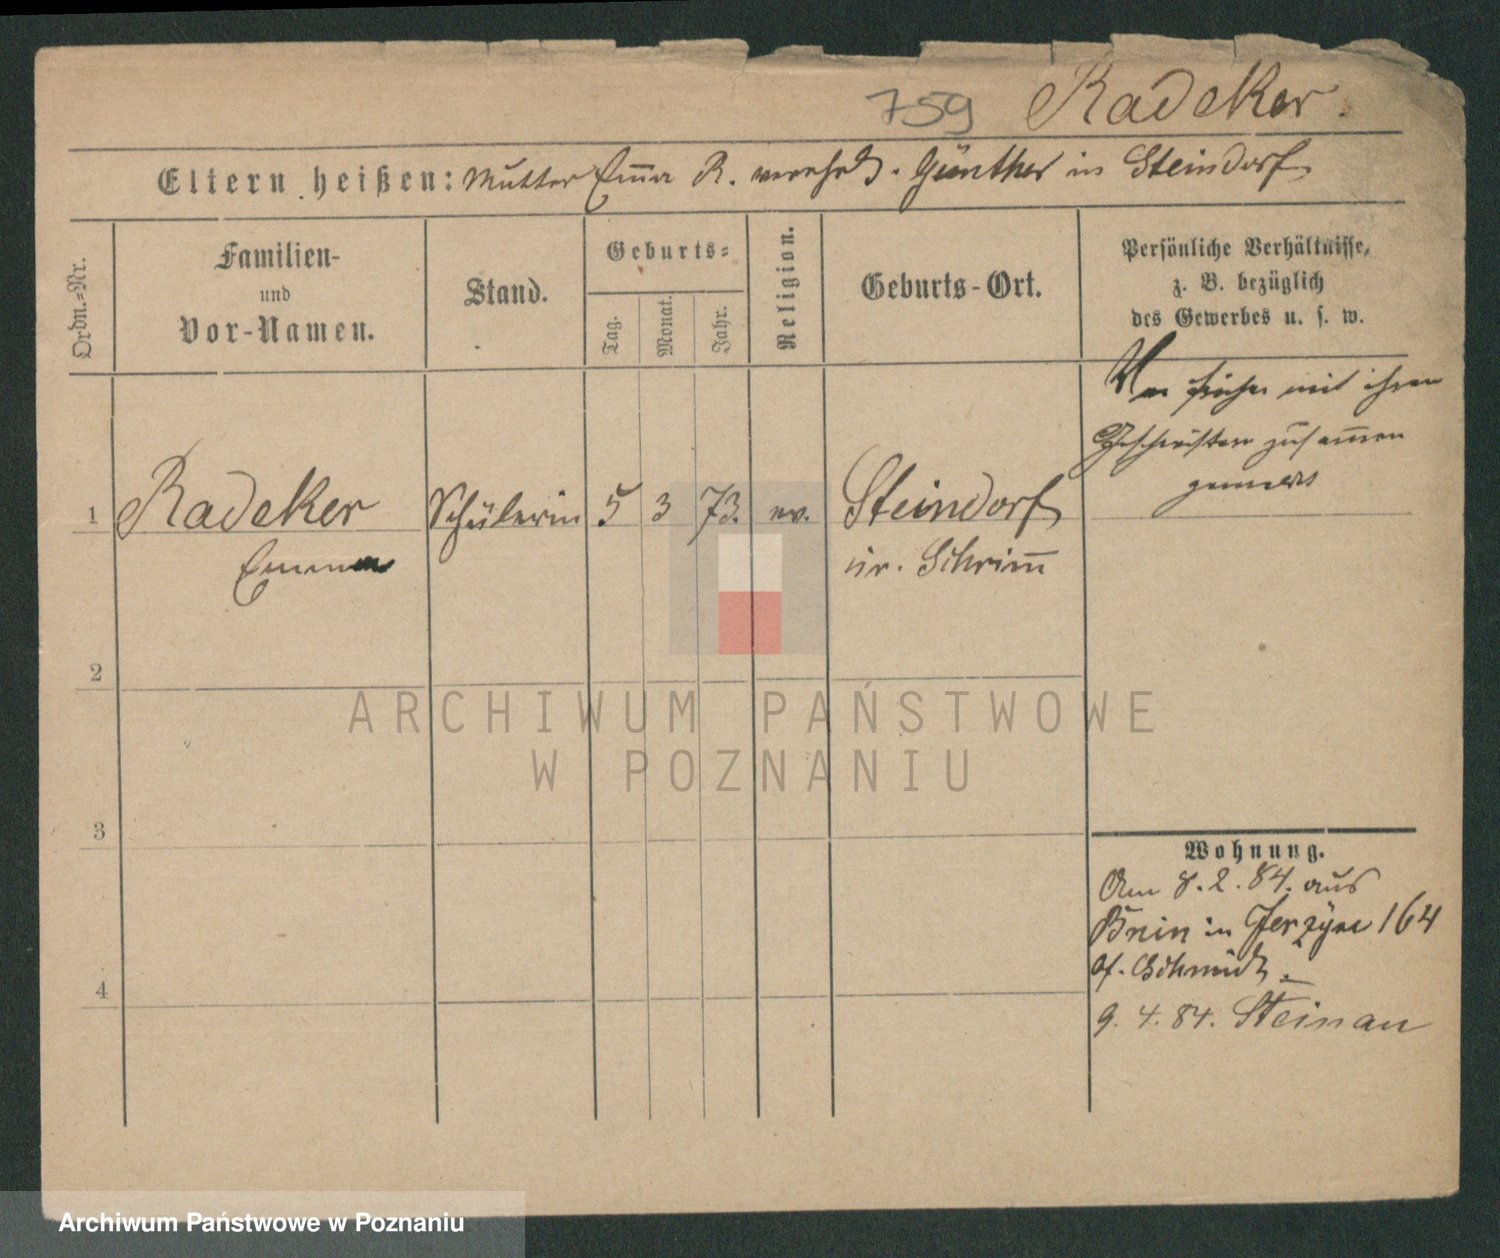 759 Radeker.
Eltern heißen: Mutter Emma R. verehel. Günther in Steindorf
Ordn.=Nr.
Familien-
und
Vor-Namen.
Stand.
Geburts=
Tag.
Monat.
Jahr.
Religion.
Geburts-Ort.
Persönliche Verhältnisse,
z. B. bezüglich
des Gewerbes u. s. w.
War früher mit ihren
Geschwistern zusammen
gemeldet
1 Radeker Schülerin 5 3 73. ev. Steindorf
Emma
Kr. Schrim̄
2
3
4
Wohnung.
Am 8.2.84. aus
Bnin in Jerzyce 164
b. Schmidt.
9.4.84. Steinau
ARCHIWUM PAŃSTWOWE
W POZNANIU
Archiwum Państwowe w Poznaniu